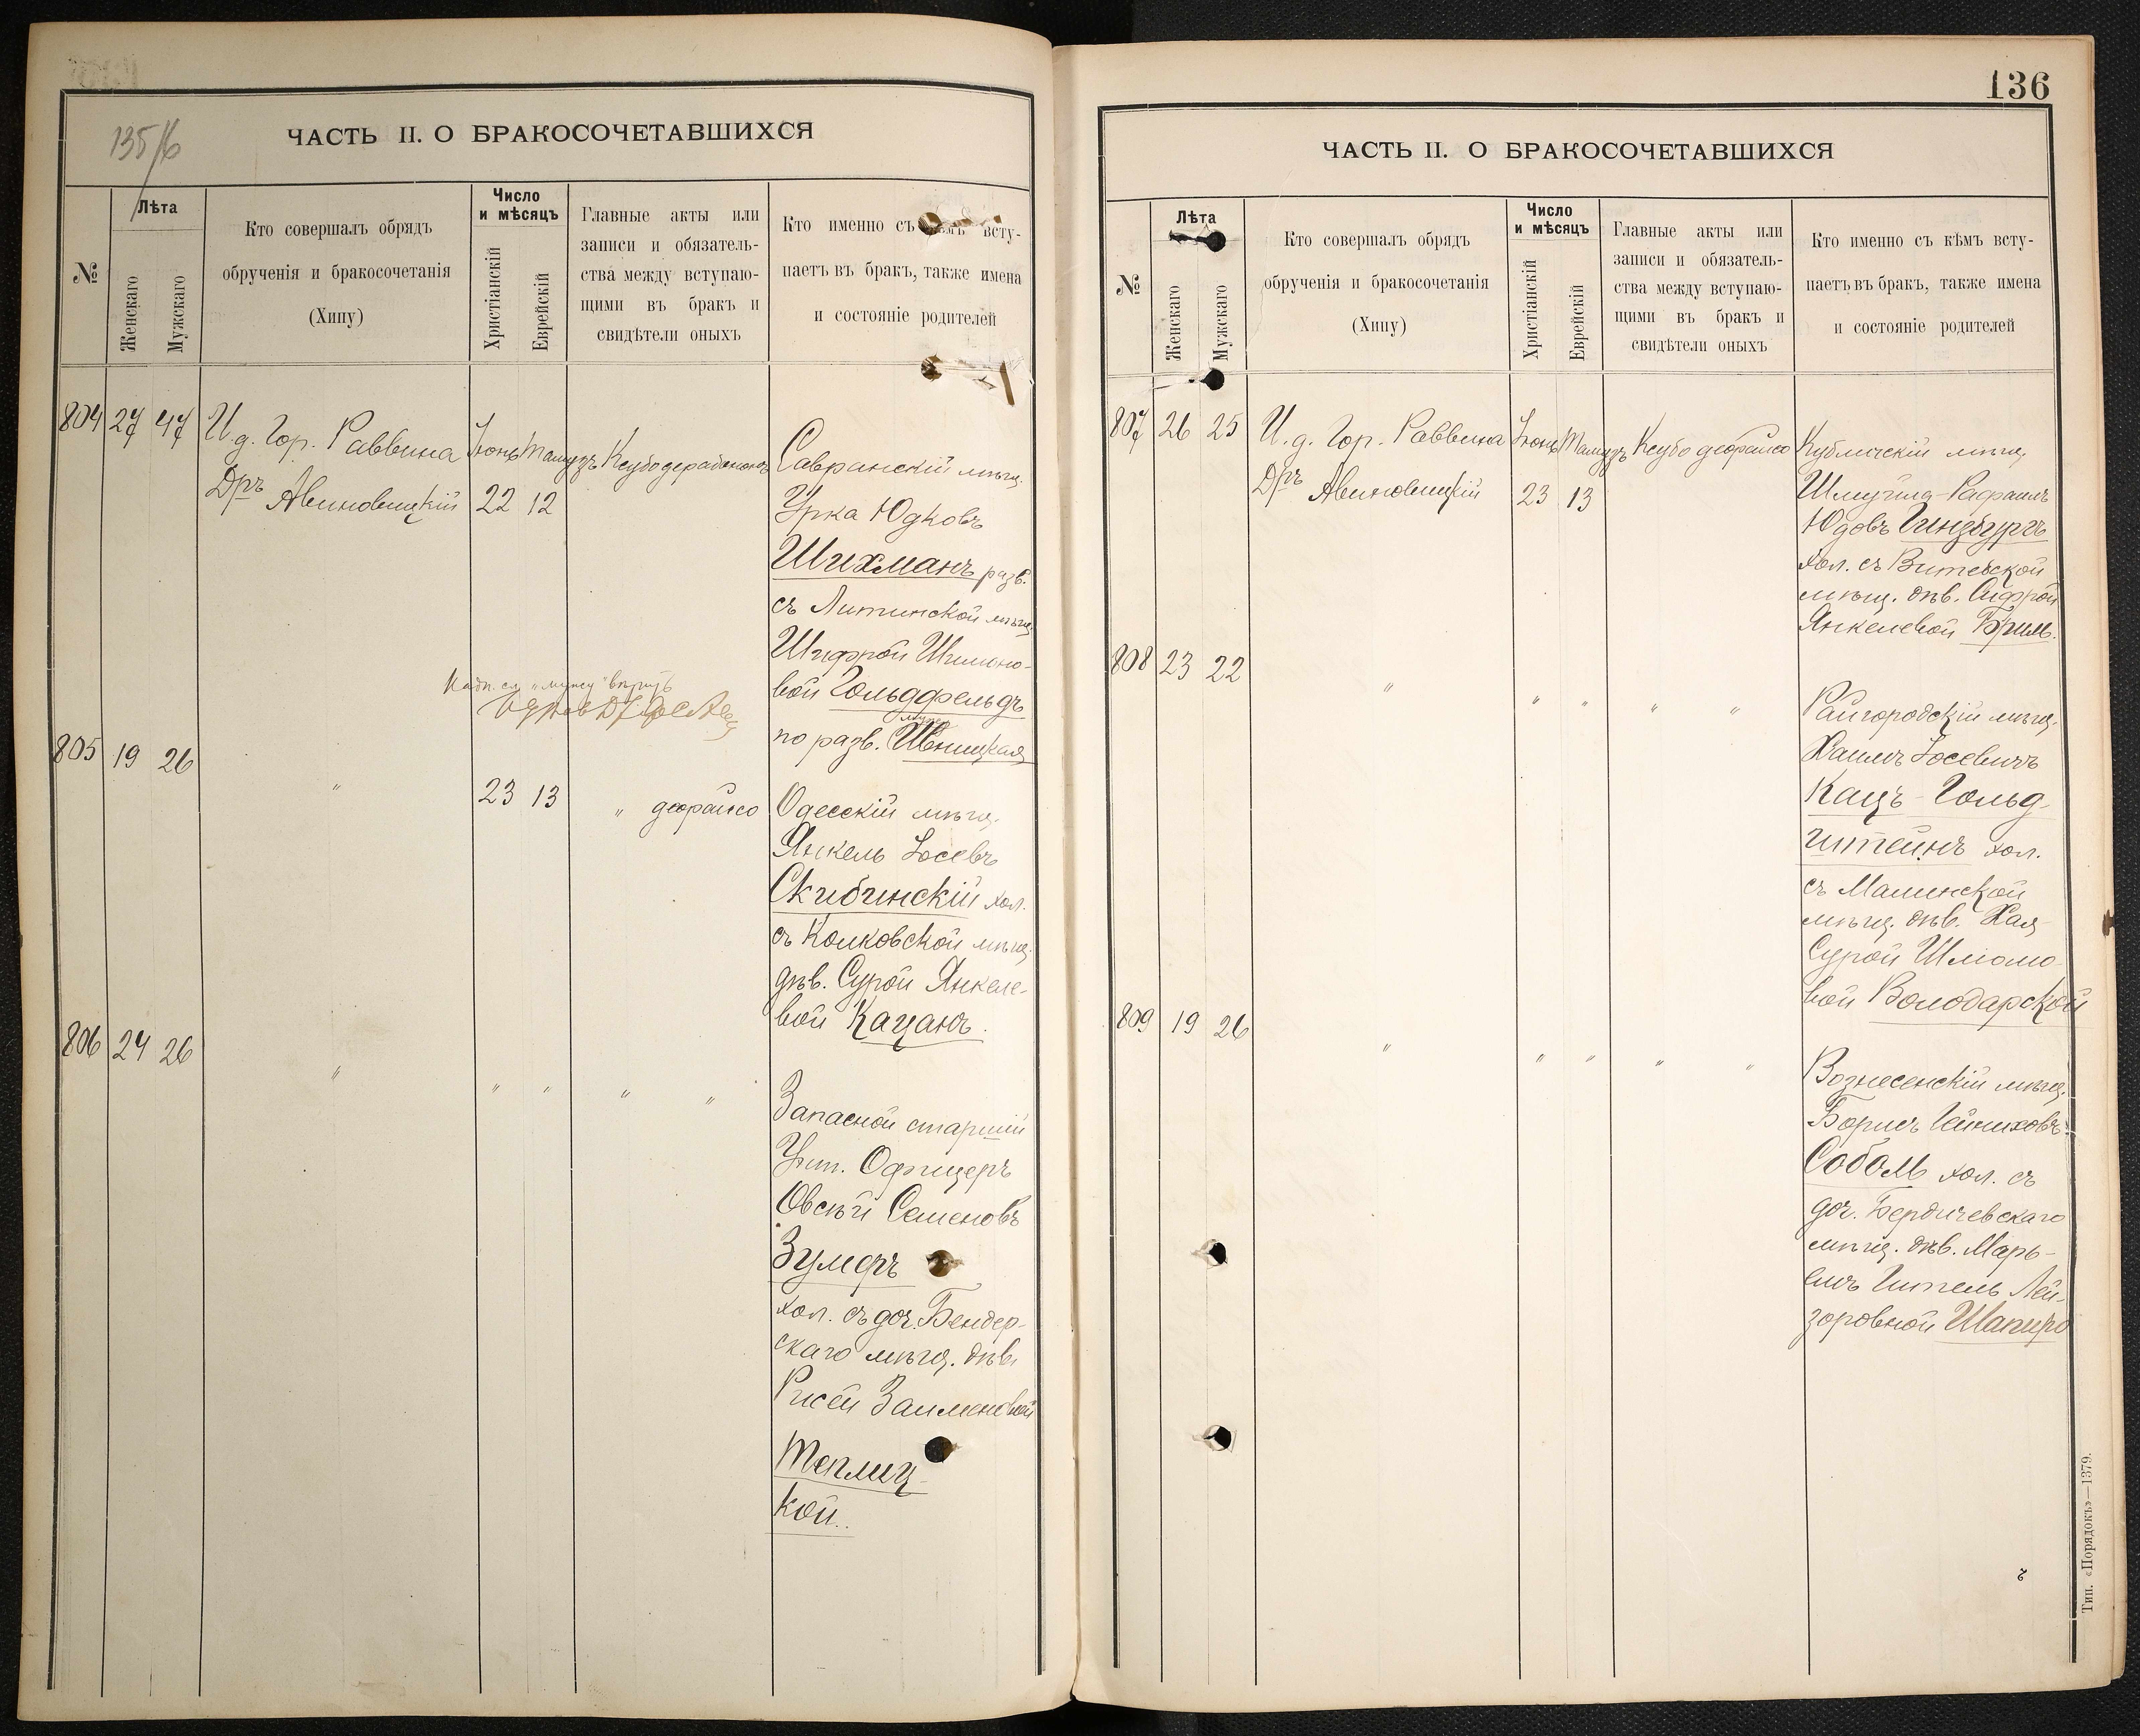 135/6
ЧАСТЬ II. О БРАКОСОЧЕТАВШИХСЯ
№
Лѣта
Женскаго
Мужскаго
Кто совершалъ обрядъ
обрученія и бракосочетанія
(Хипу)
Число
и мѣсяцъ
Христіанскій
Еврейскій
Главные акты или
записи и обязатель-
ства между вступаю-
щими въ бракъ и
свидѣтели оныхъ
Кто именно съ кѣмъ всту-
паетъ въ бракъ, также имена
и состояніе родителей
804 27 47 И. д. Гор. Раввина Іюнь Тамузъ Ксубо Савранскій мѣщ.
Дръ Авиновицкій 22 12 Урка Юдковъ
Шихманъ разв.
съ Литинской мѣщ.
Шифрой Шимоно-
вой Гольдфельдъ
по разв. Ивницкая
мужу
Надп. сл. "мужу"
805 19 26 " 23 13 " деорайсо Одесскій мѣщ.
Янкель Іосевъ
Скибинскій хол.
съ Колковской мѣщ.
дѣв. Сурой Янкеле-
вой Кацанъ.
806 24 26 " " " " " Запасной старшій
Унт. Офицеръ
Овсѣй Семеновъ
Зумеръ
хол. съ доч. Бендер-
скаго мѣщ. дѣв.
Рисей Зальмановой
Теплиц-
кой.
136
ЧАСТЬ II. О БРАКОСОЧЕТАВШИХСЯ
№
Лѣта
Женскаго
Мужскаго
Кто совершалъ обрядъ
обрученія и бракосочетанія
(Хипу)
Число
и мѣсяцъ
Христіанскій
Еврейскій
Главные акты или
записи и обязатель-
ства между вступаю-
щими въ бракъ и
свидѣтели оныхъ
Кто именно съ кѣмъ всту-
паетъ въ бракъ, также имена
и состояніе родителей
807 26 25 И. д. Гор. Раввина Іюнь Тамузъ Ксубо деорайсо Кубличскій мѣщ.
Дръ Авиновицкій 23 13 Шмуйла-Рафаилъ
Юдовъ Гинзбургъ
хол. съ Витебской
мѣщ. дѣв. Сифрой
Янкелевой Бриль.
808 23 22 " " " " " Райгородскій мѣщ.
Хаимъ Іосевичъ
Кацъ-Гольд-
штейнъ хол.
съ Малинской
мѣщ. дѣв. Хая
Сурой Шліомо-
вой Володарской
809 19 26 " " " " " Вознесенскій мѣщ.
Борисъ
Соболь хол. съ
доч. Бердичевскаго
мѣщ. дѣв. Марь-
емъ Гитель Лей-
зоровной Шапиро
Тип. «Порядокъ»—1379.